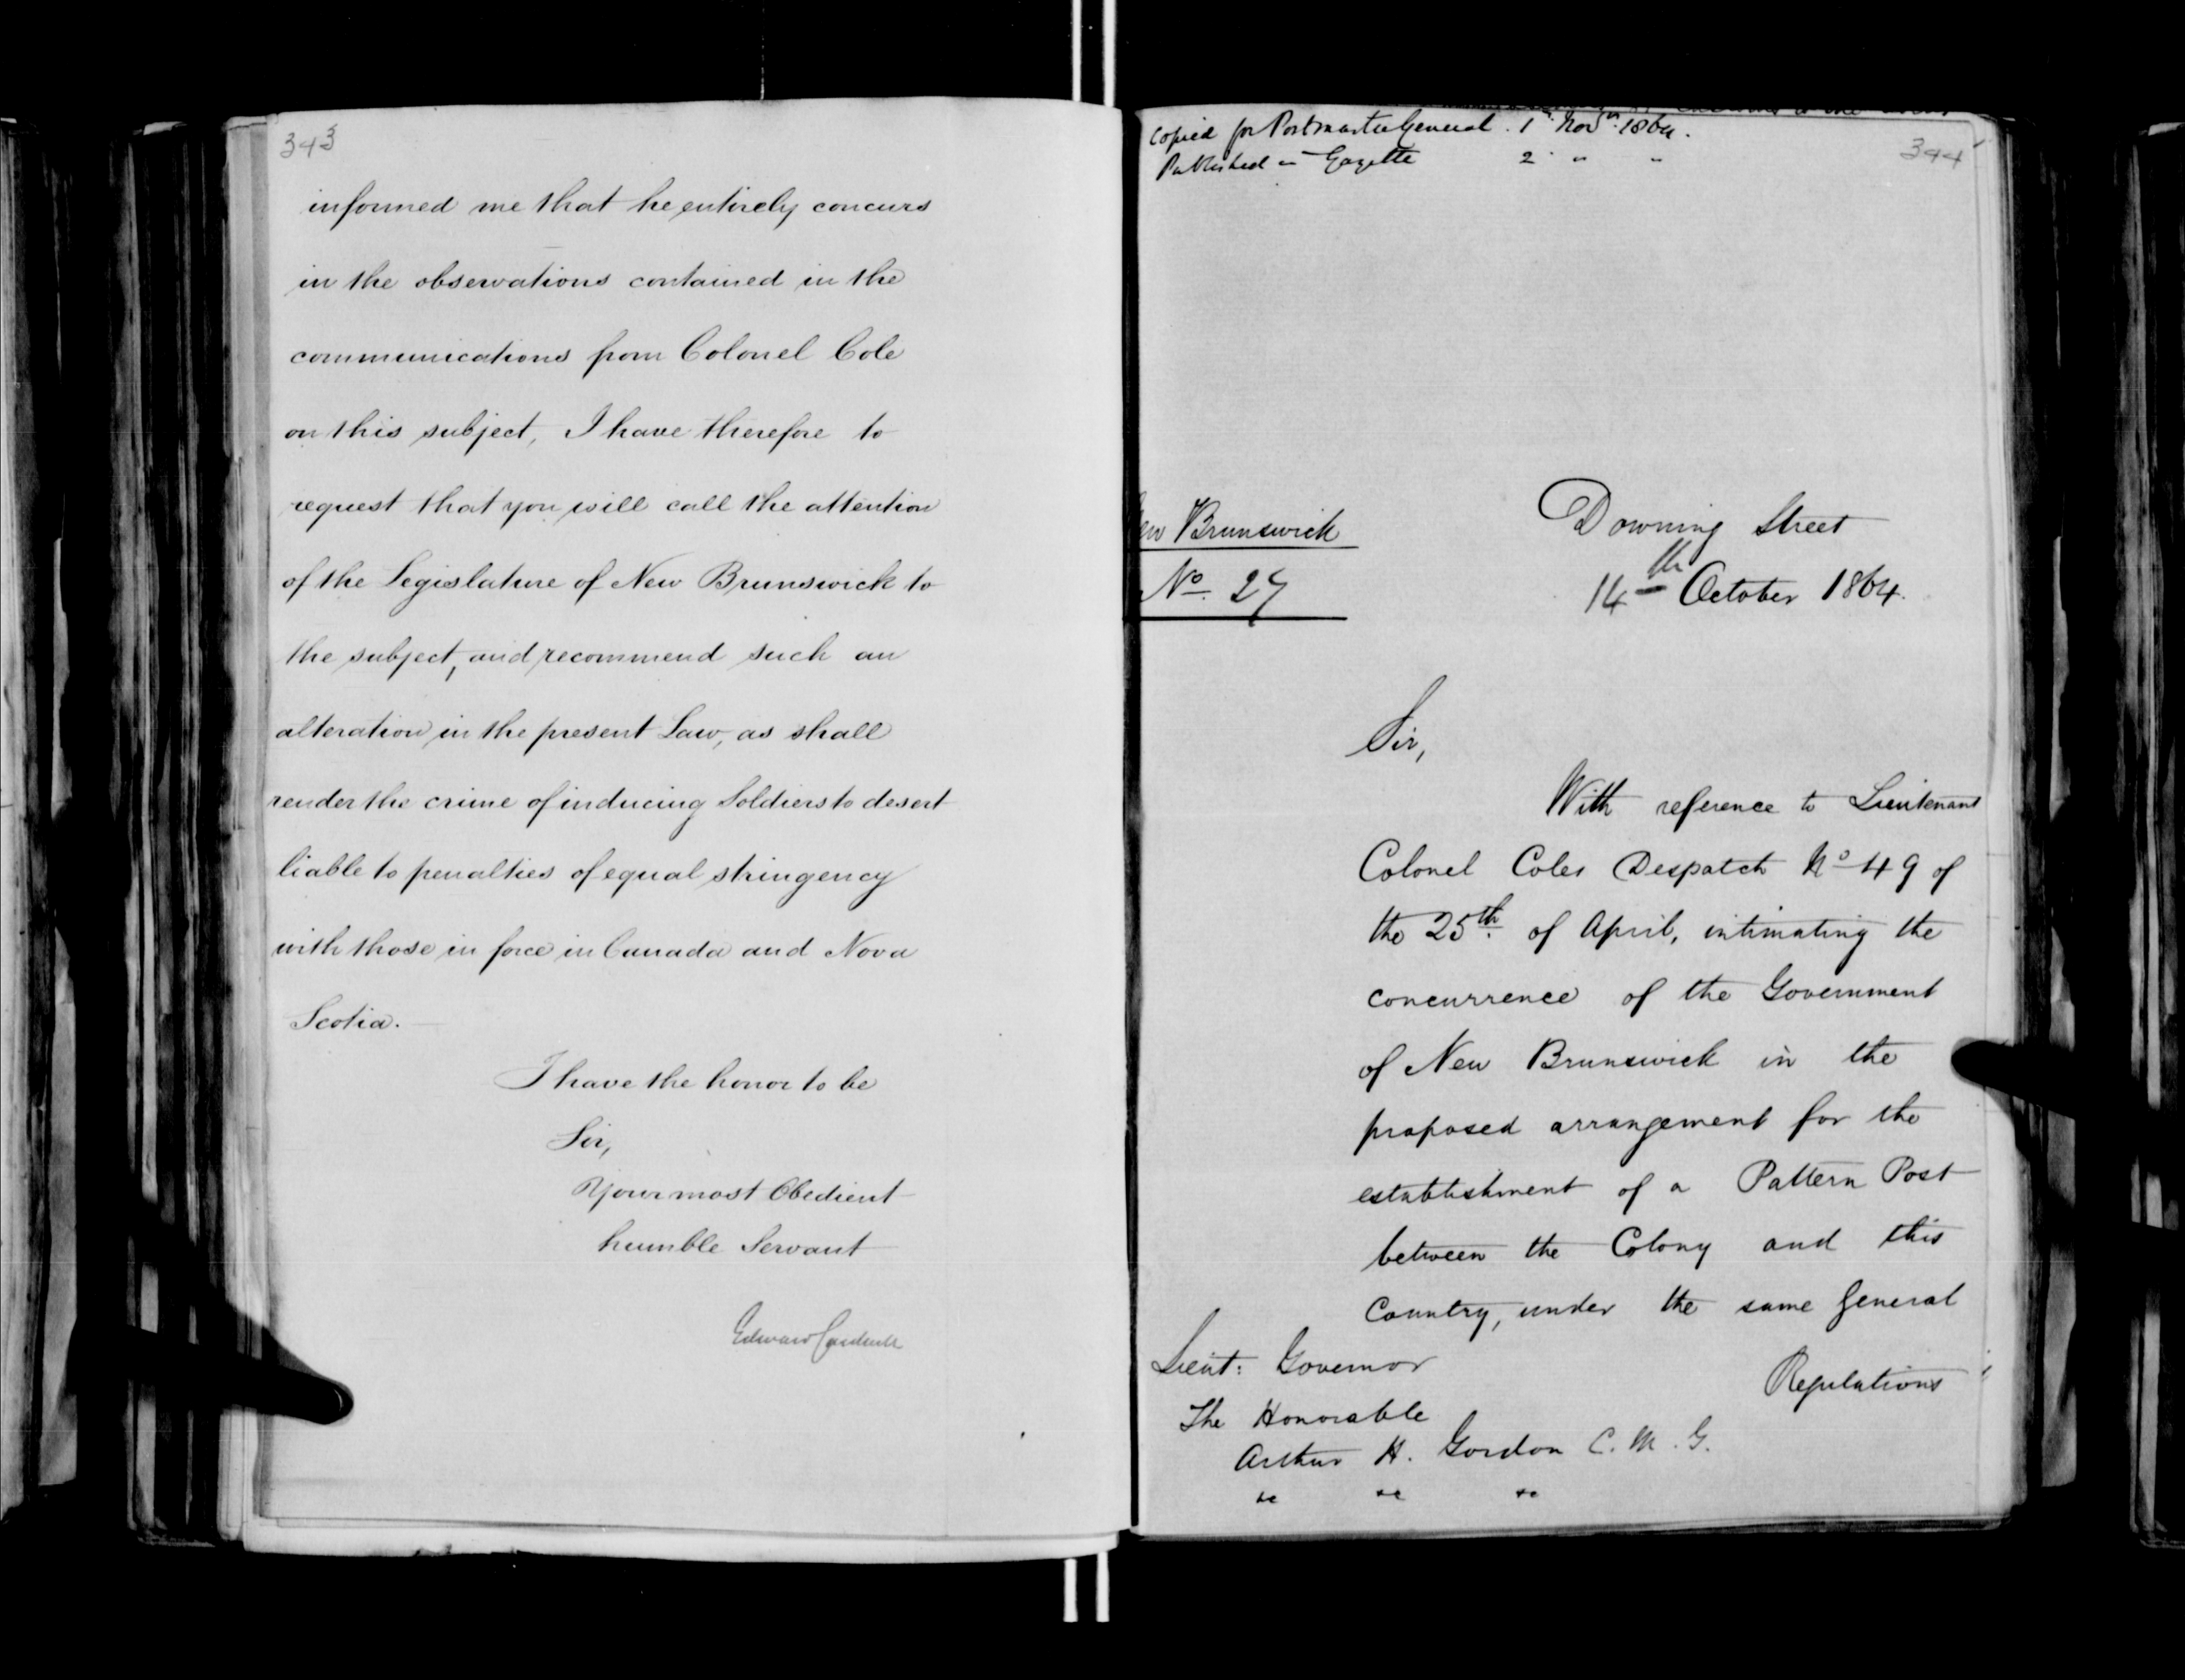 343
informed me that he entirely concurs
in the observations contained in the
communications from Colonel Cole
on this subject, I have therefore to
request that you will call the attention
of the Legislature of New Brunswick to
the subject, and recommend such an
alteration in the present Law, as shall
render the crime of inducing Soldiers to desert
liable to penalties of equal stringency
with those in force in Canada and Nova
Scotia.
I have the honor to be
Sir,
Your most Obedient
humble Servant
Edward Cardwell
Copied for Postmaster General. 1st Novr. 1864.
Published in Gazette 2 " "
344
Brunswick
No. 27
Downing Street
14th October 1864.
Sir,
With reference to Lieutenant
Colonel Coles Despatch No 49 of
the 25th. of April, intimating the
concurrence of the Government
of New Brunswick in the
proposed arrangement for the
establishment of a Pattern Post
between the Colony and this
Country, under the same General
Regulations
Lieut: Governor
The Honorable
Arthur H. Gordon C.M.G.
&c &c &c